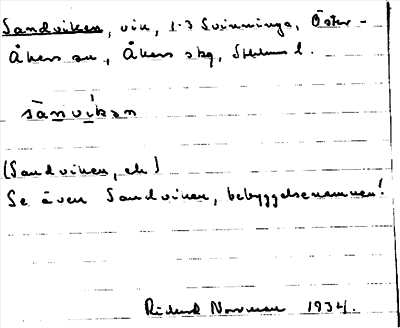 Sandviken, vik, 1-3 Svinninge, Öster-
Åkers sn, Åkers skg, Sthlms l.
sànvíkən
(Sandviken, ek)
Se även Sandviken, bebyggelsenamnen!
Rickard 1934.